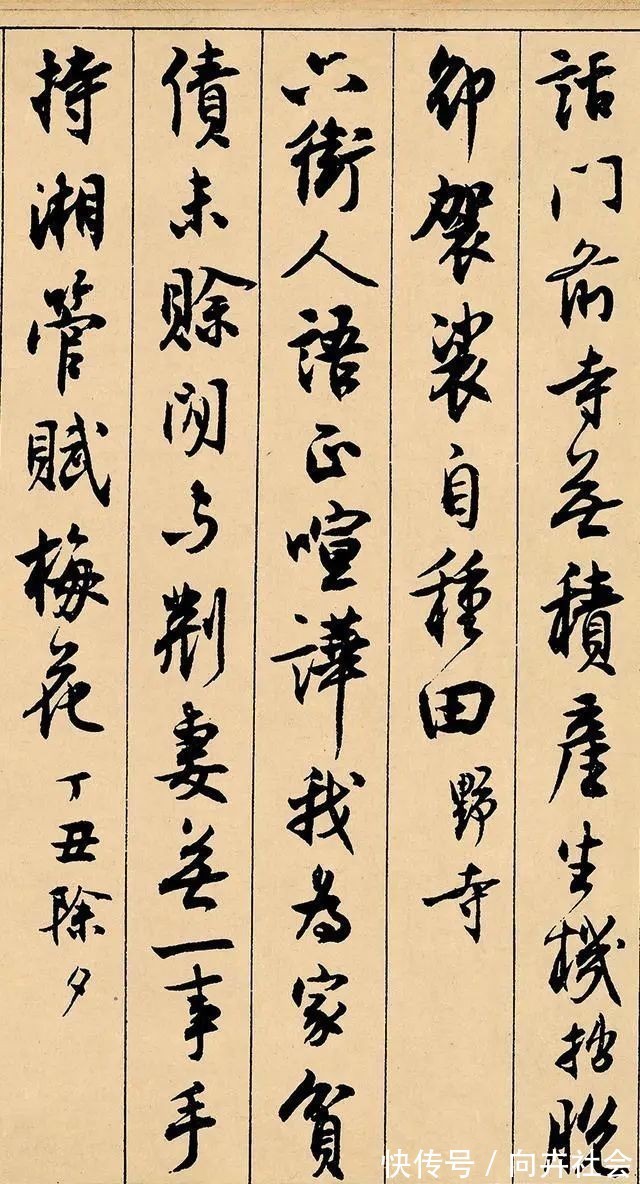 話門前寺無積產生機拙脫
卻袈裟自種田野寺
六街人語正喧譁我為家貧
債未賒閒與荊妻無一事手
持湘管賦梅花丁丑除夕
快传号/向卉社会